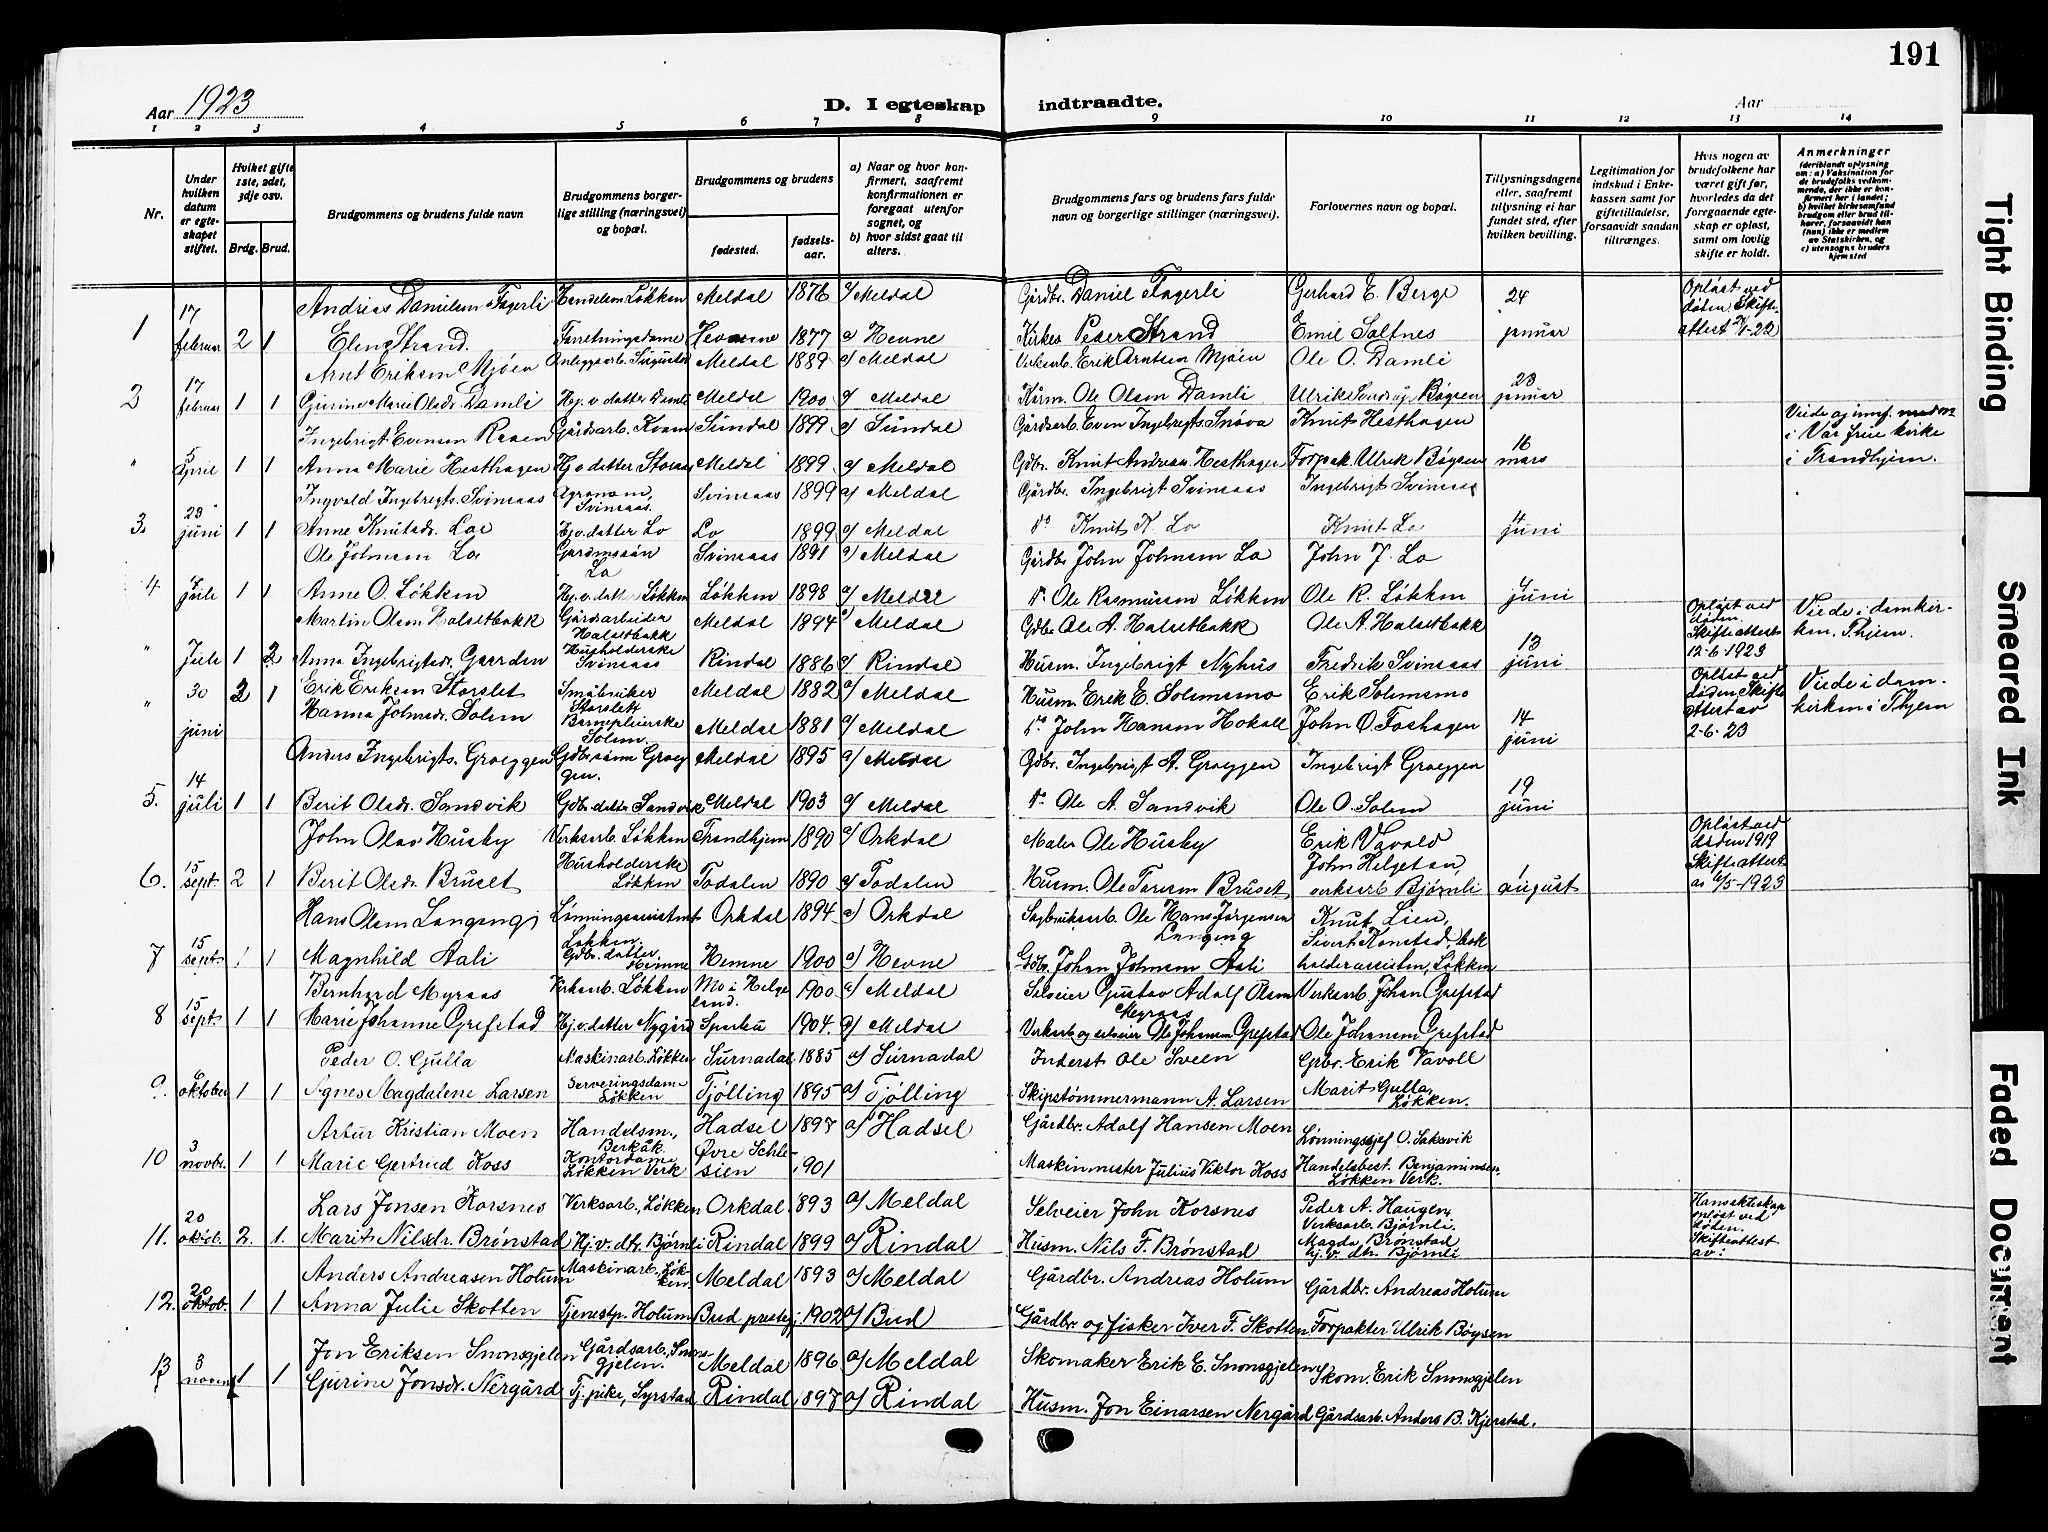 191
Aar 1923
D. I egteskap indtraadte.
Aar
1 2 3 4 5 6 7 8 9 10 11 12 13 14
Nr.
Under hvilken datum er egteskapet stiftet.
Hviket gifte 1ste, 2det, 3dje osv.
Brdg. Brud.
Brudgommens og brudens fulde navn
Brudgommens borgerlige stilling (næringsvei) og bopæl.
Brudgommens og brudens
fødested. fødselsaar.
a) Naar og hvor konfirmert, saafremt konfirmationen er foregaat utenfor sognet, og
b) hvor sidst gaat til alters.
Brudgommens fars og brudens fars fulde navn og borgerlige stillinger (næringsvei).
Forlovernes navn og bopæl.
Tillysningsdagene eller, saafremt tillysning ei har fundet sted, efter hvilken bevilling.
Legitimation for indskud i Enkekassen samt for giftetilladelse, forsaavidt saadan tiltrænges.
Hvis nogen av brudefolkene har været gift før, hvorledes da det foregaaende egteskap er opløst, samt om lovlig skifte er holdt.
Anmerkninger
(deriblandt oplysning om: a) Vaksination for de brudefolks vedkommende, der ikke er konfirmert her i landet;
b) hvilket kirkesamfund brudgom eller brud tilhører, forsaavidt han (hun) ikke er medlem av Statskirken, og
c) utensogns bruders hjemsted
1 17 februar 2 1 Andreas Danielsen Fagerli Løkken Meldal 1876 a/ Meldal Gårdbr. Daniel Fagerli Gerhard E. Berge 24 januar Opløst ved døden. Skifteattest
Elen Strand. Forretningsdame 1877 a/ Hevne Peder Strand Emil Saltnes
2 17 februar 1 1 Arnt Eriksen Mjøen Meldal 1889 a/ Meldal Erik Arntsen Mjøen Ole O. Damli 23 januar
Gjurine Marie Olsdr. Damli Hj. v. datter Damli Meldal 1900 a/ Meldal Ole Olsen Damli Ulrik Bøysen
" 5 april 1 1 Ingebrigt Evensen Raaen Gårdsarb. Kvam Sundal 1899 a/ Sundal Gårdsarb. Even Ingebrigts. Knut Hesthagen 16 mars Viede og i Vår frue kirke i Trondhjem.
Anna Marie Hesthagen Hj. v. datter Meldal 1899 a/ Meldal Gdbr. Knut Andreas Hesthagen Forpakt. Ulrik Bøysen
3. 23 juni 1 1 Ingvald Ingebrigts. Svinsaas Agronom, Svinsaas. Svinsaas 1899 a/ Meldal Gårdbr. Ingebrigt Svinsaas Ingebrigt Svinsaas 4 juni
Anne Knutsdr. Loe Hj. v. datter Lo Lo 1899 a/ Meldal do Knut K. Lo Knut Lo
4 juli 1 1 Ole Johnsen Lo Lo Svinsaas 1891 a/ Meldal Gårdbr. John Johnsen Lo John J. Lo juni
Anne O. Løkken Hj. v. datter Løkken Løkken 1898 a/ Meldal do Ole Rasmussen Løkken Ole R. Løkken
" Juli 1 2 Martin Olsen Halsetbakk Gårdsarbeider Halsetbakk Meldal 1894 a/ Meldal Gdbr. Ole A. Halsetbakk Ole A. Halsetbakk 13 juni Opløst ved døden. Skifteattest 12-6-1923 Viede i domkirken, Thjem.
Anna Ingebrigtsdr. Husholderske Svinsaas Rindal 1886 a/ Rindal Husm. Ingebrigt Nyhus Fredrik Svinsaas
" 30 juni 2 1 Erik Eriksen Storslet Småbruker Storslett Meldal 1882 a/ Meldal Husm. Erik E. Solemsmo Erik Solemsmo 14 juni Opløst ved døden. Skifteattest av 2-6-23 Viede i domkirken i Thjem
Hanna Johnsdr. Solem Barnepleierske Solem Meldal 1881 a/ Meldal do John Hansen John O. Foshagen
5. 14 juli 1 1 Anders Ingebrigts. Groeggen Gdbr.sønn Groeggen. Meldal 1895 a/ Meldal Gdbr. Ingebrigt A. Groeggen Ingebrigt Groeggen 19 juni
Berit Olsdr. Sandvik Gdbr.datter Sandvik Meldal 1903 a/ Meldal do Ole A. Sandvik Ole O. Solem
6. 15 sept. 2 1 John Olav Husby Verksarb. Løkken Trondhjem 1890 a/ Orkdal Maler Ole Husby Erik Vavold 1 august Opløst ved døden 1919 Skifteattest av 6/5-1923
Berit Olsdr. Bruset Husholderske Løkken Todalen 1890 a/ Todalen Husm. Ole Bruset John Helgetun, verksarb Bjørnli
7 15 sept 1 1 Hans Olsen Langeng Lønningsassistent Løkken. Orkdal 1894 a) Orkdal Sagbruksarb. Ole Hans Jørgensen Langeng Knut Lien,
Magnhild Aali Gdbr. datter Hemne Hemne 1900 a) Hevne Gdbr. Johan Johnsen Aali Sivert Konstad, bokholderassistent, Løkken
8 15 sept. 1 1 Bernhard Myraas Verksarb. Løkken Mo i Helgeland. 1900 a/ Meldal Selveier Gustav Adolf Olsen Myraas Verksarb. Johan Grefstad
Marie Johanne Grefstad Hj. v. datter Nygård Sparbu 1904. a) Meldal Verksarb og selveier Ole Johansen Grefstad Ole Johansen Grefstad
9. 6 oktober 1 1 Peder O. Gulla Maskinarb. Løkken Surnadal 1885 a/ Surnadal Inderst Ole Sveen Grbr. Erik Vavoll
Agnes Magdalene Larsen Serveringsdame Løkken Tjølling 1895 a/ Tjølling Skipstømmermann A. Larsen Marit Gulla, Løkken.
10 3 novbr. 1 1 Artur Kristian Moen Handelsm., Berkåk Hadsel 1897 a/ Hadsel Gårdbr. Adolf Hansen Moen Lønningssjef O. Saksvik
Marie Gertrud Koss Kontordame Løkken Verk Øvre Schlesien 1901 Maskinmester Julius Viktor Koss Handelsbest. Benjaminsen, Løkken Verk.
11. 20 oktob. 2. 1. Lars Jonsen Korsnes Verksarb., Løkken Orkdal 1893 a/ Meldal Selveier John Korsnes Peder A. Haugen, Verksarb. Bjørnli. Hans ekteskap opløst ved døden. Skifteattest av:
Marit Nilsdr. Brønstad Hj. v. dtr. Bjørnli Rindal 1899 a/ Rindal Husm. Nils F. Brønstad Magda Brønstad hj. v. dtr. Bjørnli
12. 20 oktob. 1 1 Anders Andreasen Holum Maskinarb., Løkken. Meldal 1893 a/ Meldal Gårdbr. Andreas Holum Gårdbr. Andreas Holum
Anna Julie Skotten Tjenestp. Holum Bud prestegj 1902 a/ Bud Gårdbr. og fisker Iver F. Skotten Forpakter Ulrik Bøysen
13 3 novem. 1 1 Jon Eriksen Snoasgjelen Gårdsarb., Snoasgjelen. Meldal 1896 a/ Meldal Skomaker Erik E. Snoasgjelen Skom. Erik Snoasgjelen
Gjurine Jonsdr. Nergård Tj. pike, Syrstad Rindal 1897 a/ Rindal Husm. Jon Einarsen Nergård Gårdsarb. Anders B. Kjerstad.
Tight Binding
Smeared Ink
Faded Document